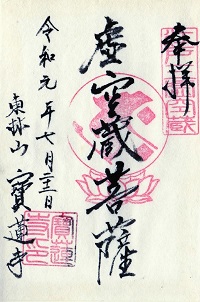 奉拝
虚空蔵菩薩
令和元年七月二十二日
東林山 寳蓮寺